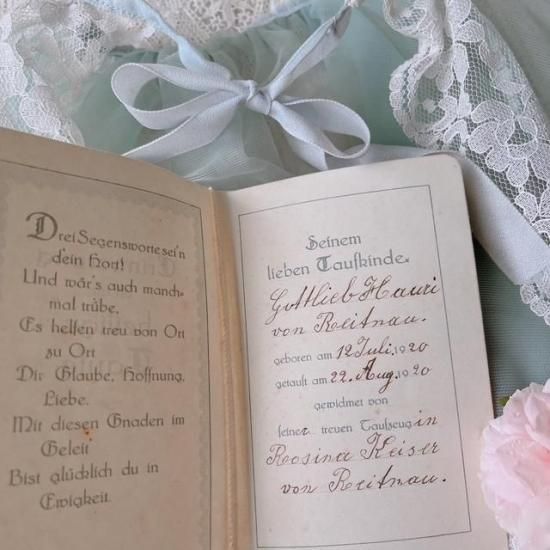 Drei Segensworte sei'n
dein Hort!
Und wär's auch manch-
mal trübe,
Es helfen treu von Ort
zu Ort
Dir Glaube, Hoffnung,
Liebe.
Mit diesen Gnaden im
Geleit
Bist glücklich du in
Ewigkeit.
Seinem
lieben Taufkinde.
Gottlieb Hauri
von Reitnau.
geboren am 12 Juli, 1920
getauft am 22. Aug. 1920
gewidmet von
seiner treuen Taufzeugin
Rosina Keiser
von Reitnau.